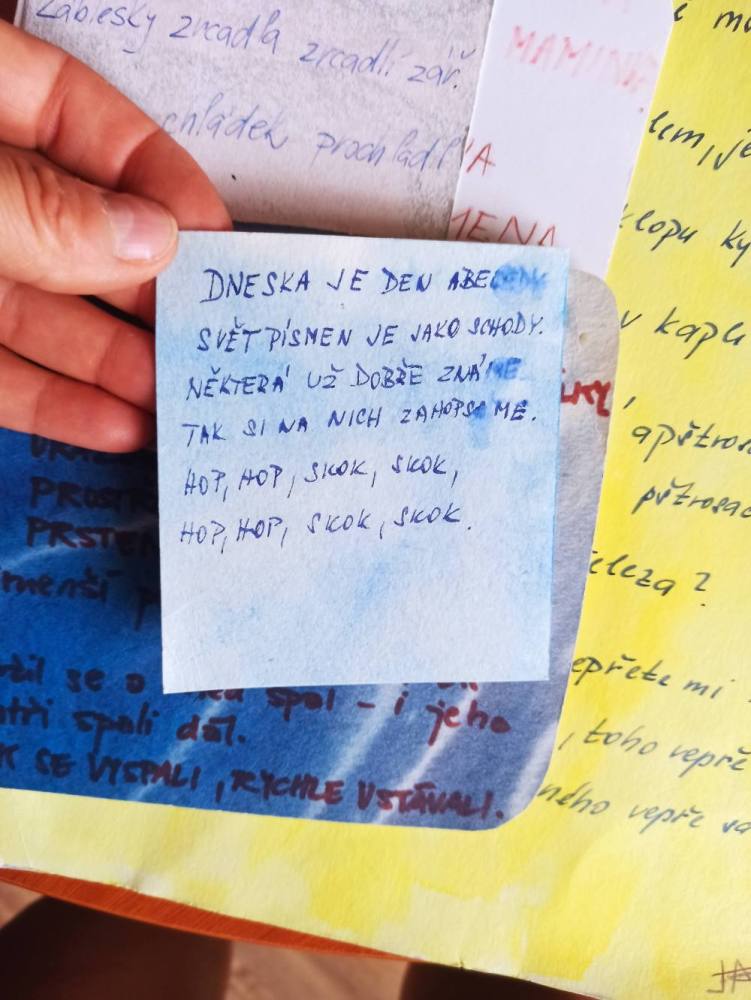 Záblesky zrcadla zrcadlí zář.
chládek prochládil
MAMINA
DNESKA JE DEN ABECEDY
SVĚT PÍSMEN JE JAKO SCHODY.
NĚKTERÁ UŽ DOBŘE ZNÁME
TAK SI NA NICH ZAHOPSÁME.
HOP, HOP, SKOK, SKOK,
HOP, HOP, SKOK, SKOK.
PROST
PRSTEN
menší
žil se o spal – i jeho
spali dál.
SE VYSPALI, RYCHLE VSTÁVALI.
i
klopu ky
v kapli
apštros
pštrosac
eleza?
epřete mi
, toho vepře
ného vepře sa